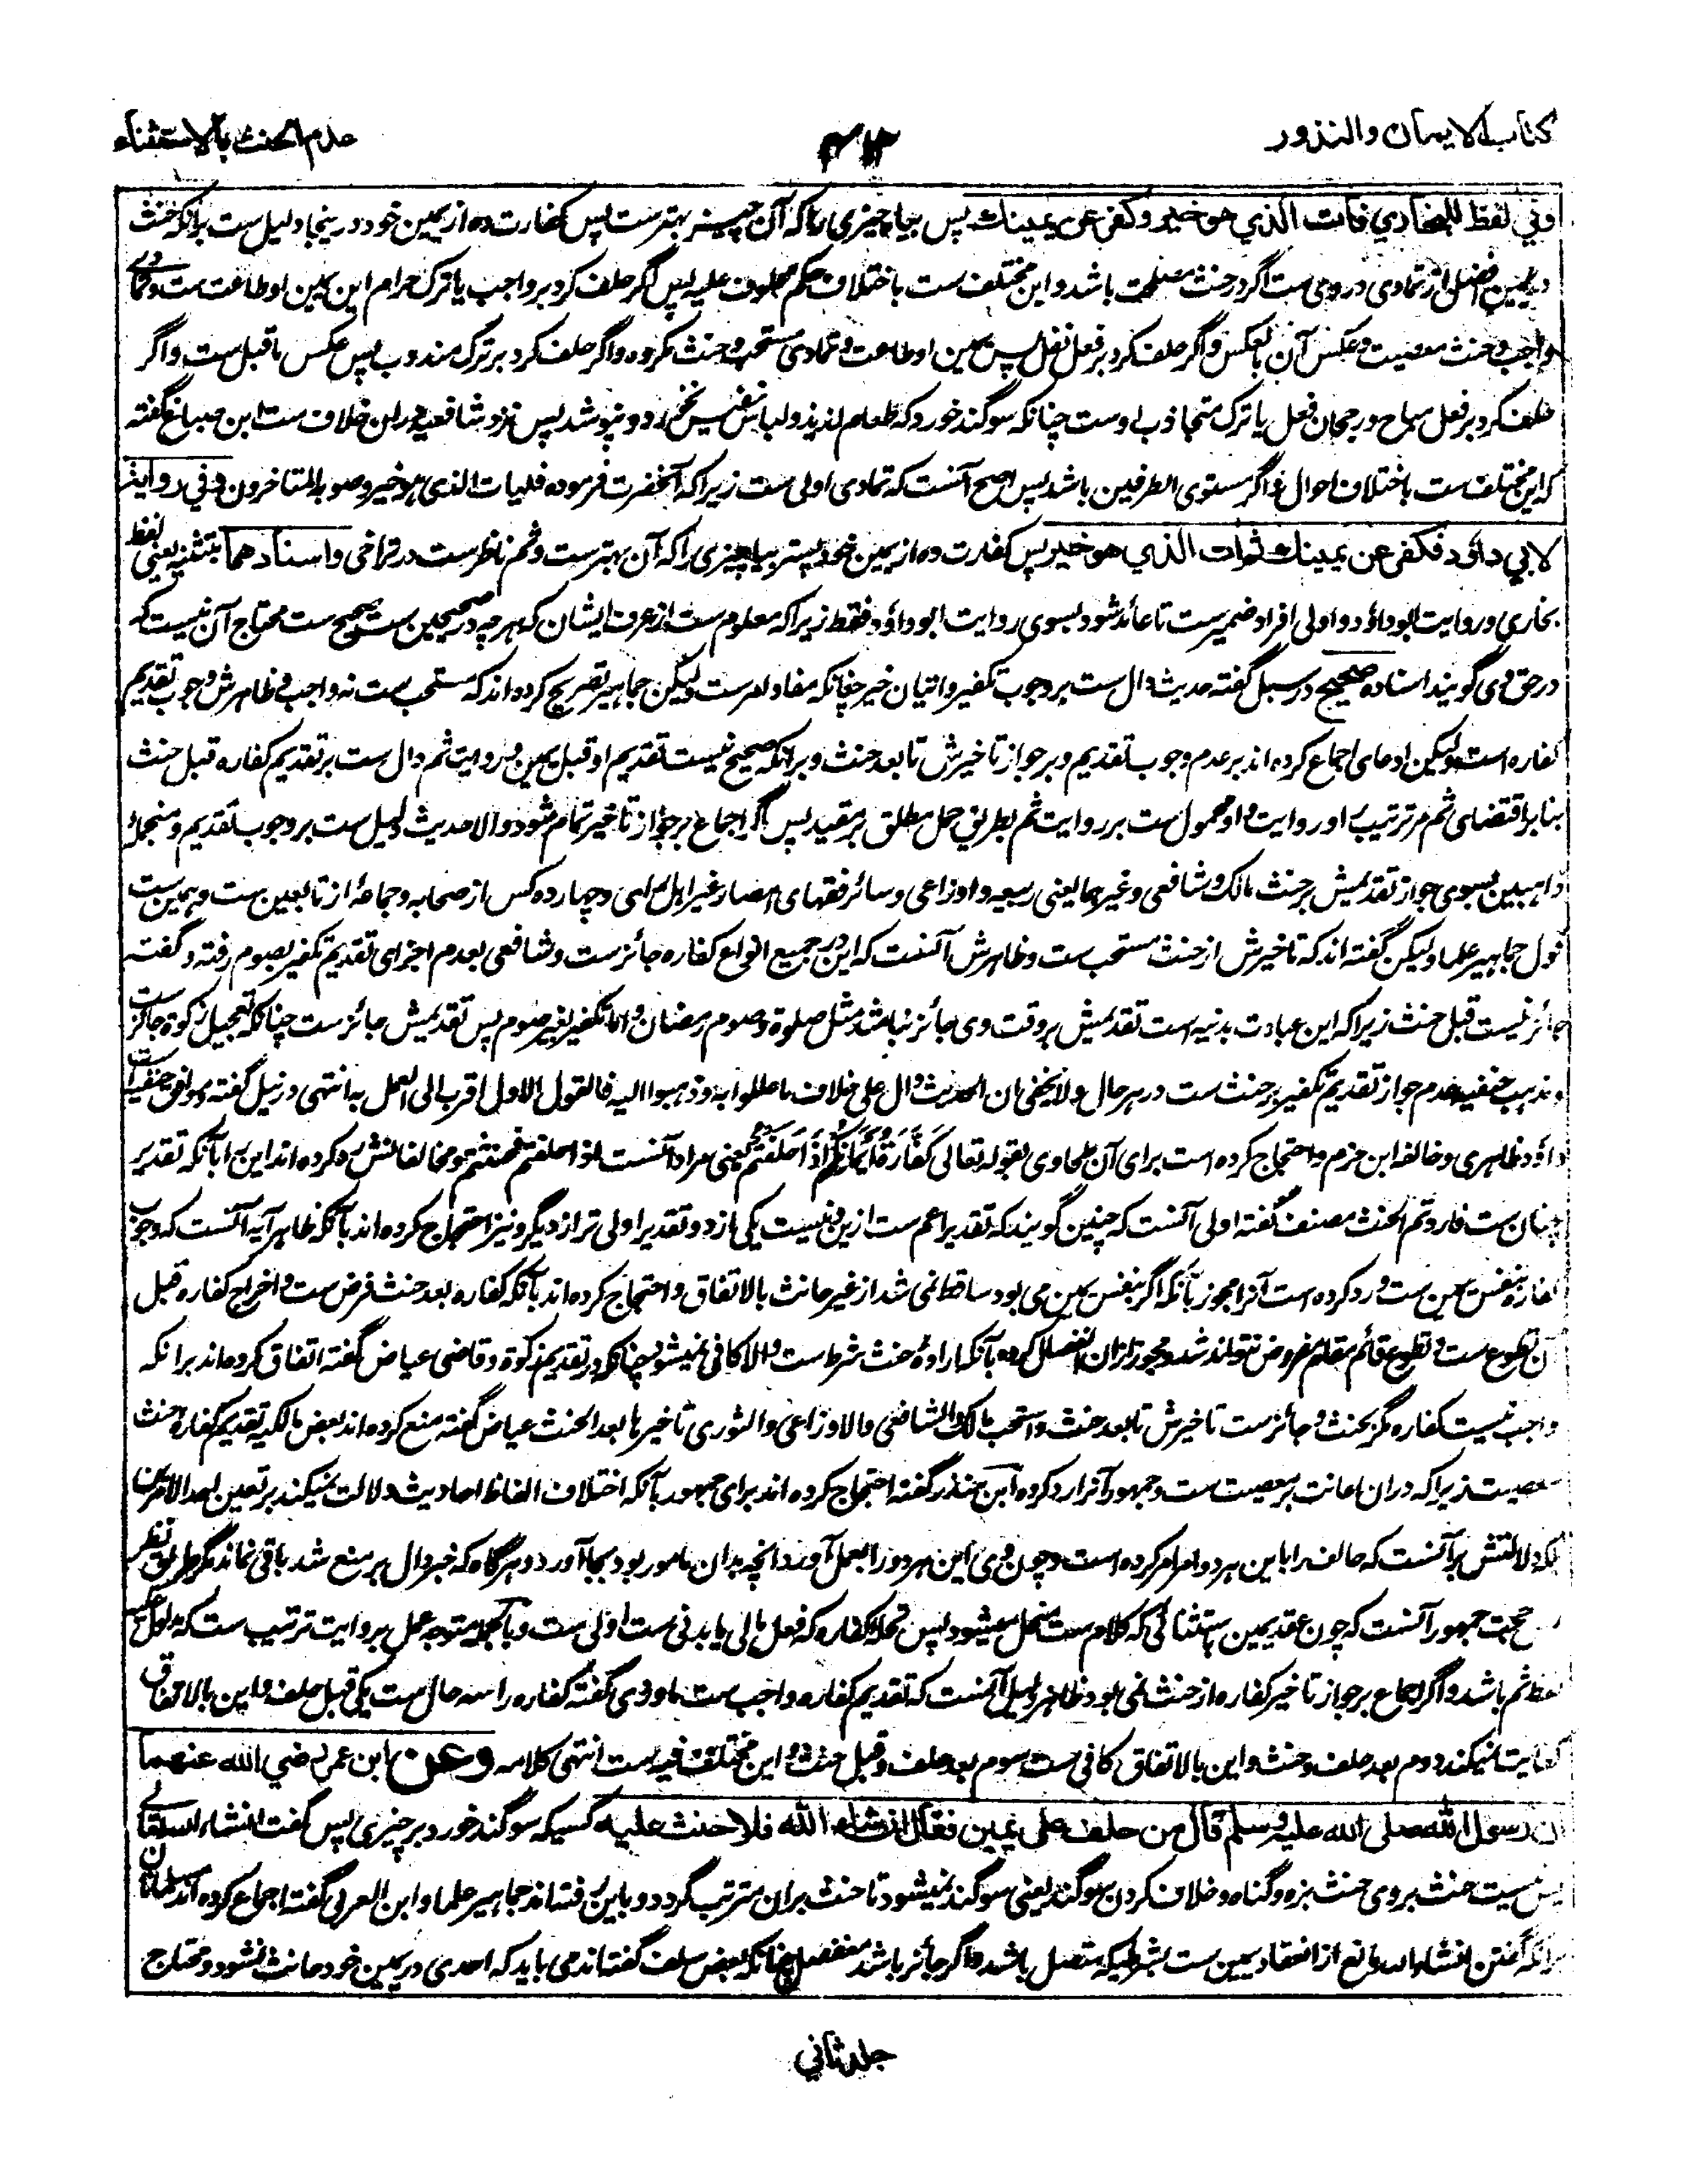 كتاب الايمان والنذور
عدم الحنث بالاستثناء
وفي لفظ للبخاري فات الذي هو خير وكفر عن يمينك پس بيا چيزی را كه آن چيز بهترست پس كفارت ده از يمين خود درينجا دليل ست برانكه حنث
در يمين افضل از تمادی در وی ست اگر در حنث مصلحت باشد و اين مختلف ست باختلاف حكم محلوف عليه پس اگر حلف كرد بر واجب يا ترك حرام اين يمين او طاعت ست و تمادی
واجب و حنث معصيت و عكس آن بالعكس و اگر حلف كرد بر فعل نفل پس يمين او طاعت و تمادی مستحب و حنث مكروه و اگر حلف كرد بر ترك مندوب پس عكس ما قبل ست و اگر
حلف كرد بر فعل مباح و رجحان فعل يا ترك متجاذب اوست چنانكه سوگند خورد كه طعام لذيذ و لباس نفيس نخورد و نپوشد پس نزد شافعيه دران خلاف ست ابن صباغ گفته
كه اين مختلف ست باختلاف احوال و اگر مستوی الطرفين باشد پس اصح آنست كه تمادی اولی ست زيرا كه آنحضرت فرموده فليات الذی هو خير وصوبه المتاخرون وفي رواية
لابي داؤد فكفر عن يمينك ثم ات الذي هو خير پس كفارت ده از يمين خود پستر بيا چيزی را كه آن بهترست و ثم ناظرست در تراخی واسنادهما بتثنيه يعنی لفظ
بخاری و روايت ابوداؤد و اولی افراد ضميرست تا عائد شود بسوی روايت ابوداؤد فقط زيرا كه معلوم ست از عرف ايشان كه هر چه در صحيحين ست صحيح ست محتاج آن نيست كه
در حق وی گويند اسناده صحيح در سبل گفته حديث دال ست بر وجوب تكفير و اتيان خير چنانكه مفاد امرست وليكن جماهير تصريح كرده اند كه مستحب ست نه واجب و ظاهرش وجوب تقديم
كفاره است وليكن ادعای اجماع كرده اند بر عدم وجوب تقديم و بر جواز تاخيرش تا بعد حنث و برانكه صحيح نيست تقديم او قبل يمين و روايت ثم دال ست بر تقديم كفاره قبل حنث
بنا بر اقتضای ثم مر ترتيب را و روايت واو محمول ست بر روايت ثم بطريق حمل مطلق بر مقيد پس اگر اجماع بر جواز تاخير تمام شود والا حديث دليل ست بر وجوب تقديم و منجملهٔ
ذاهبين بسوی جواز تقديمش بر حنث مالك و شافعی و غيرهما يعنی ربيعه و اوزاعی و سائر فقهای امصار غير اهل رای و چهارده كس از صحابه و جماعهٔ از تابعين ست و همين ست
قول جماهير علما وليكن گفته اند كه تاخيرش از حنث مستحب ست و ظاهرش آنست كه اين در جميع انواع كفاره جائزست و شافعی بعدم اجزای تقديم تكفير بصوم رفته و گفته
جائز نيست قبل حنث زيرا كه اين عبادت بدنيه است تقديمش بر وقت وی جائز نباشد مثل صلوة و صوم رمضان و اما تكفير بغير صوم پس تقديمش جائزست چنانكه تعجيل زكوة جائز ست
و مذهب حنفيه عدم جواز تقديم تكفير بر حنث ست در هر حال ولا يخفى ان الحديث دال علی خلاف ما عللوا به وذهبوا اليه فالقول الاول اقرب الی العمل به انتهی و در نيل گفته و موافق حنفيه است
داؤد ظاهری و خالفه ابن حزم و احتجاج كرده است برای آن طحاوی بقوله تعالی كَفَّارَةُ أَيْمَانِكُمْ إِذَا حَلَفْتُمْ يعنی مراد آنست اذا حلفتم فحنثتم و مخالفانش رد كرده اند اين را بآنكه تقدير
چنان ست فاردتم الحنث مصنف گفته اولی آنست كه چنين گويند كه تقدير اعم ست ازين و نيست يكی از دو تقدير اولی تر از ديگر و نيز احتجاج كرده اند بآنكه ظاهر آيه آنست كه وجوب
كفاره بنفس يمين ست و رد كرده است آنرا مجوز بآنكه اگر بنفس يمين می بود ساقط نمی شد از غير حانث بالاتفاق و احتجاج كرده اند بآنكه كفاره بعد حنث فرض ست و اخراج كفاره قبل
آن تطوع ست و تطوع قائم مقام مفروض نتواند شد و مجوز ازان انفصال كرده بآنكه ارادهٔ حنث شرط ست والا كافی نميشود چنانكه در تقديم زكوة و قاضی عياض گفته اتفاق كرده اند برانكه
واجب نيست كفاره مگر بحنث و جائزست تاخيرش تا بعد حنث و استحب مالك والشافعی والاوزاعی والثوری تاخيرها بعد الحنث عياض گفته منع كرده اند بعض مالكيه تقديم كفارهٔ حنث
معصيت زيرا كه دران اعانت بر معصيت ست و جمهور آنرا رد كرده ابن منذر گفته احتجاج كرده اند برای جمهور بآنكه اختلاف الفاظ احاديث دلالت نميكند بر تعين احد الامرين
بلكه دلالتش بر آنست كه حالف را باين هر دو امر كرده است و چون وی اين هر دو را بعمل آورد انچه بدان مامور بود بجا آورد و هرگاه كه خبر دال بر منع نشد باقی نماند مگر طريق نظر
و حجت جمهور آنست كه چون عقد يمين باستثنائی كه كلام ست منحل ميشود پس تحلل بكفاره كه فعل مالی يا بدنی ست اولی ست و بالجمله متوجه عمل بروايت ترتيب ست كه مدلول عليه
لفظ ثم باشد و اگر اجماع بر جواز تاخير كفاره از حنث نمی بود ظاهر دليل آنست كه تقديم كفاره واجب ست ماوردی گفته كفاره را سه حال ست يكی قبل حلف و اين بالاتفاق
كفايت نميكند دوم بعد حلف و حنث و اين بالاتفاق كافی ست سوم بعد حلف و قبل حنث و اين مختلف فيه ست انتهی كلامه وعن ابن عمر رضي الله عنهما
ان رسول الله صلى الله عليه وسلم قال من حلف على يمين فقال ان شاء الله فلا حنث عليه كسيكه سوگند خورد بر چيزی پس گفت انشاء الله تعالی
پس نيست حنث بر وی حنث بزه و گناه و خلاف كردن سوگند يعنی سوگند نميشود تا حنث بران مترتب گردد و باين رفته اند جماهير علما و ابن العربی گفته اجماع كرده اند مسلمانان
برانكه گفتن انشاء الله مانع از انعقاد يمين ست بشرطيكه متصل باشد و اگر جائز باشد منفصل چنانكه بعض سلف گفته اند می بايد كه احدی در يمين خود حانث نشود و محتاج
جلد ثاني